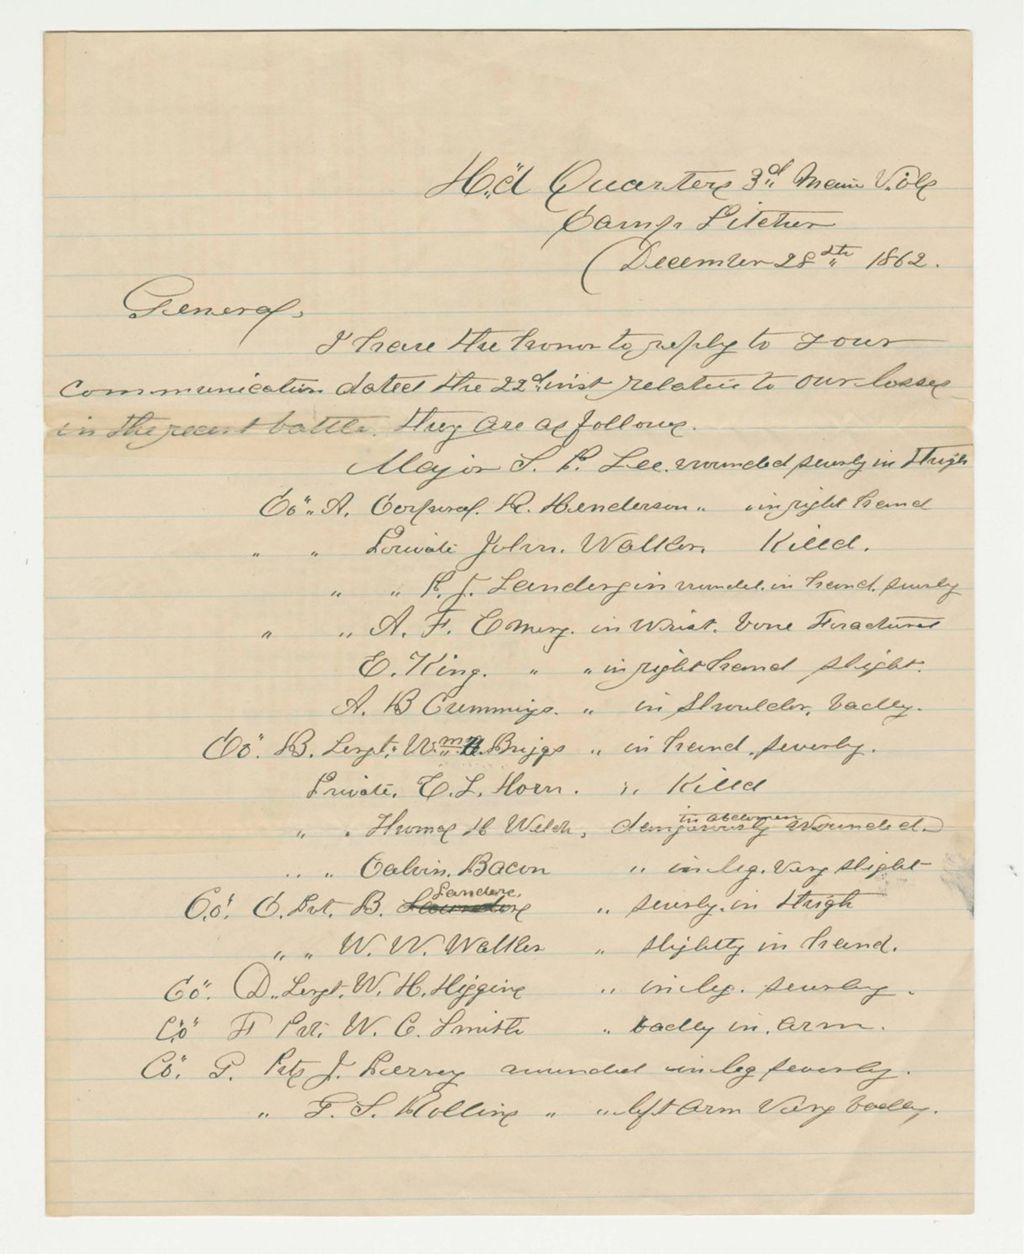 H,'d Quarters 3rd Main Vols
Camp Pitcher
December 28th 1862.
General,
I have the honor to reply to your
communication dated the 22d inst relative to our losses
in the recent battle. they are as follows.
Major S. P. Lee. wounded severly in Thigh
Co". A. Corporal. R. Henderson " in right hand
" " Private John. Walker. Killed.
" " P. J. Landergin wounded. in hand. severly
" " A. F. Emery. in wrist. bone Fractured
E. King. " " in right hand slight.
A. B Cummings. " in shoulder, badly.
Co". B. Sergt. Wm Briggs " in hand, severly.
Private. E. L. Horn. " Killed
" " Thomas H Welch, dangerously in abdomen wounded.
" " Calvin. Bacon " in leg. very slight
Co". C. Pvt. B. Landers. " severly. in thigh
" " W. W. Walker " slightly in hand.
Co". D. Sergt. W. H. Higgins " in leg. severly.
Co" F Pvt. W. C. Smith " badly in. arm.
Co". G. Pvts J. Perrey wounded in leg severly.
" F. S. Rollins " " left arm very badly.